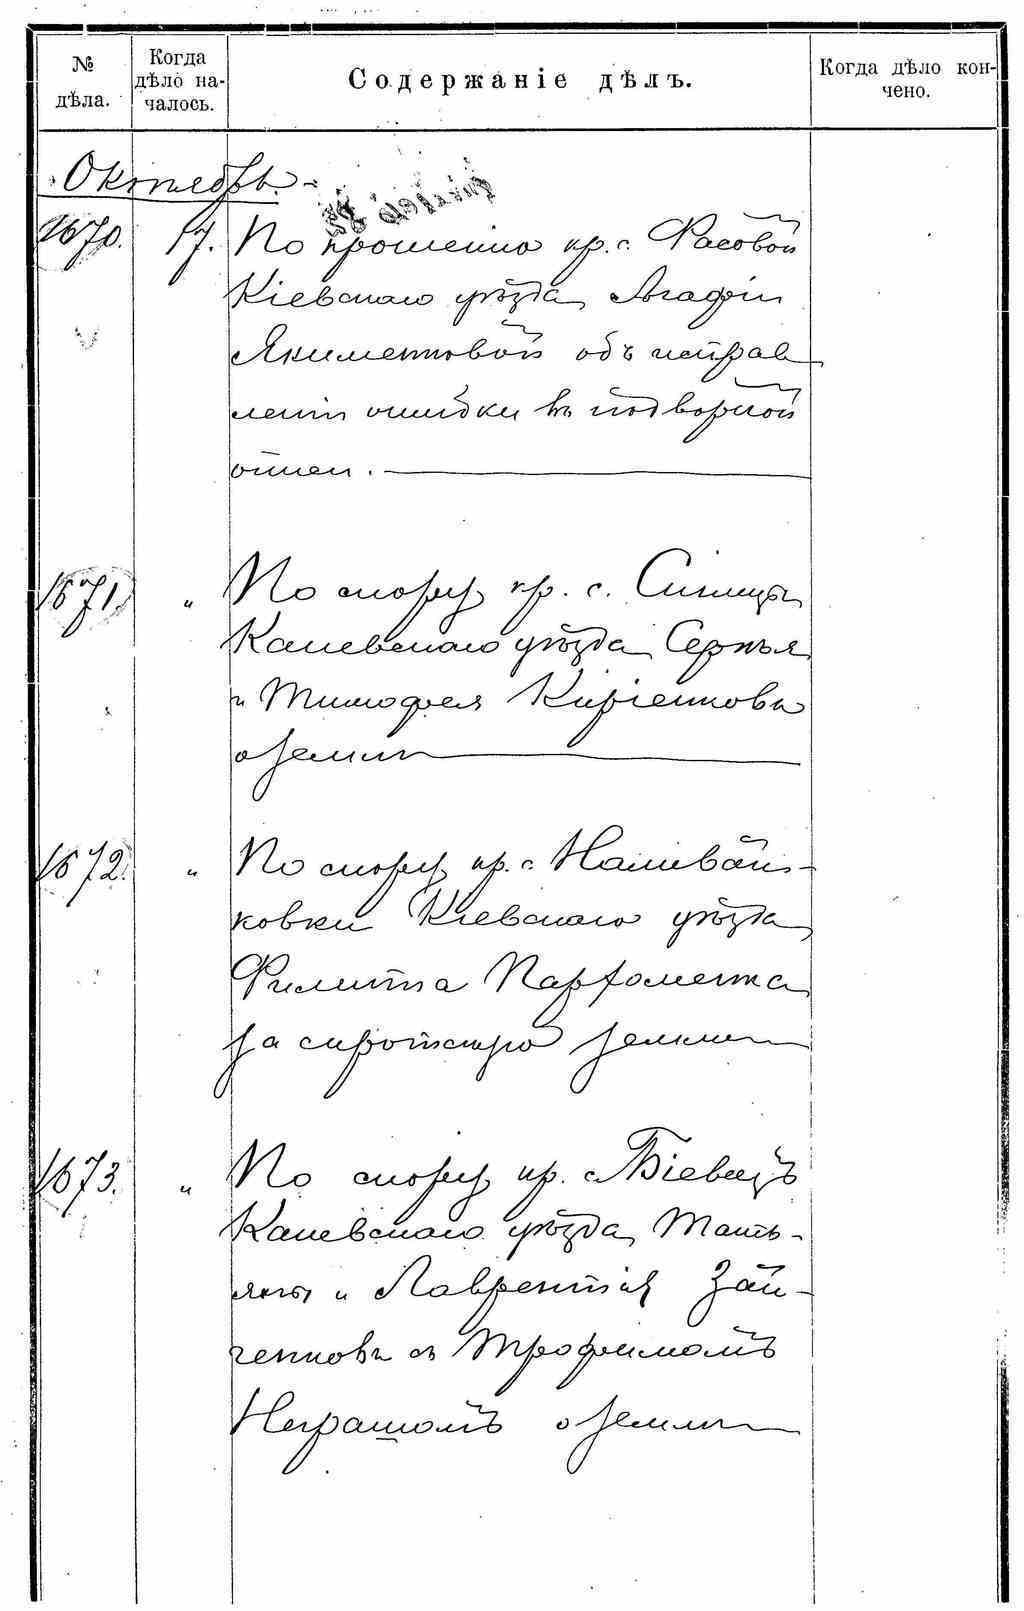 № дѣла.
Когда дѣло на-чалось.
Содержаніе дѣлъ.
Когда дѣло кон-чено.
Октябрь.
1670. 17. По прошенію кр. с. Фасовой
Кіевскаго уѣзда Агафіи
Якименковой объ исправ
леніи ошибки въ подворной
описи.
1671. " По спору кр. с. Синицы
Каневскаго уѣзда Сергѣя
и Тимофея Киріенковъ
о землѣ
1672. " По спору кр. с. Наливай-
ковки Кіевскаго уѣзда
Филиппа Парфоменка
за сиротскую землю
1673. " По спору кр. с. Біевецъ
Каневскаго уѣзда Тать-
яны и Лаврентія Зай-
ченковъ съ Трофимомъ
Неграшомъ о землѣ